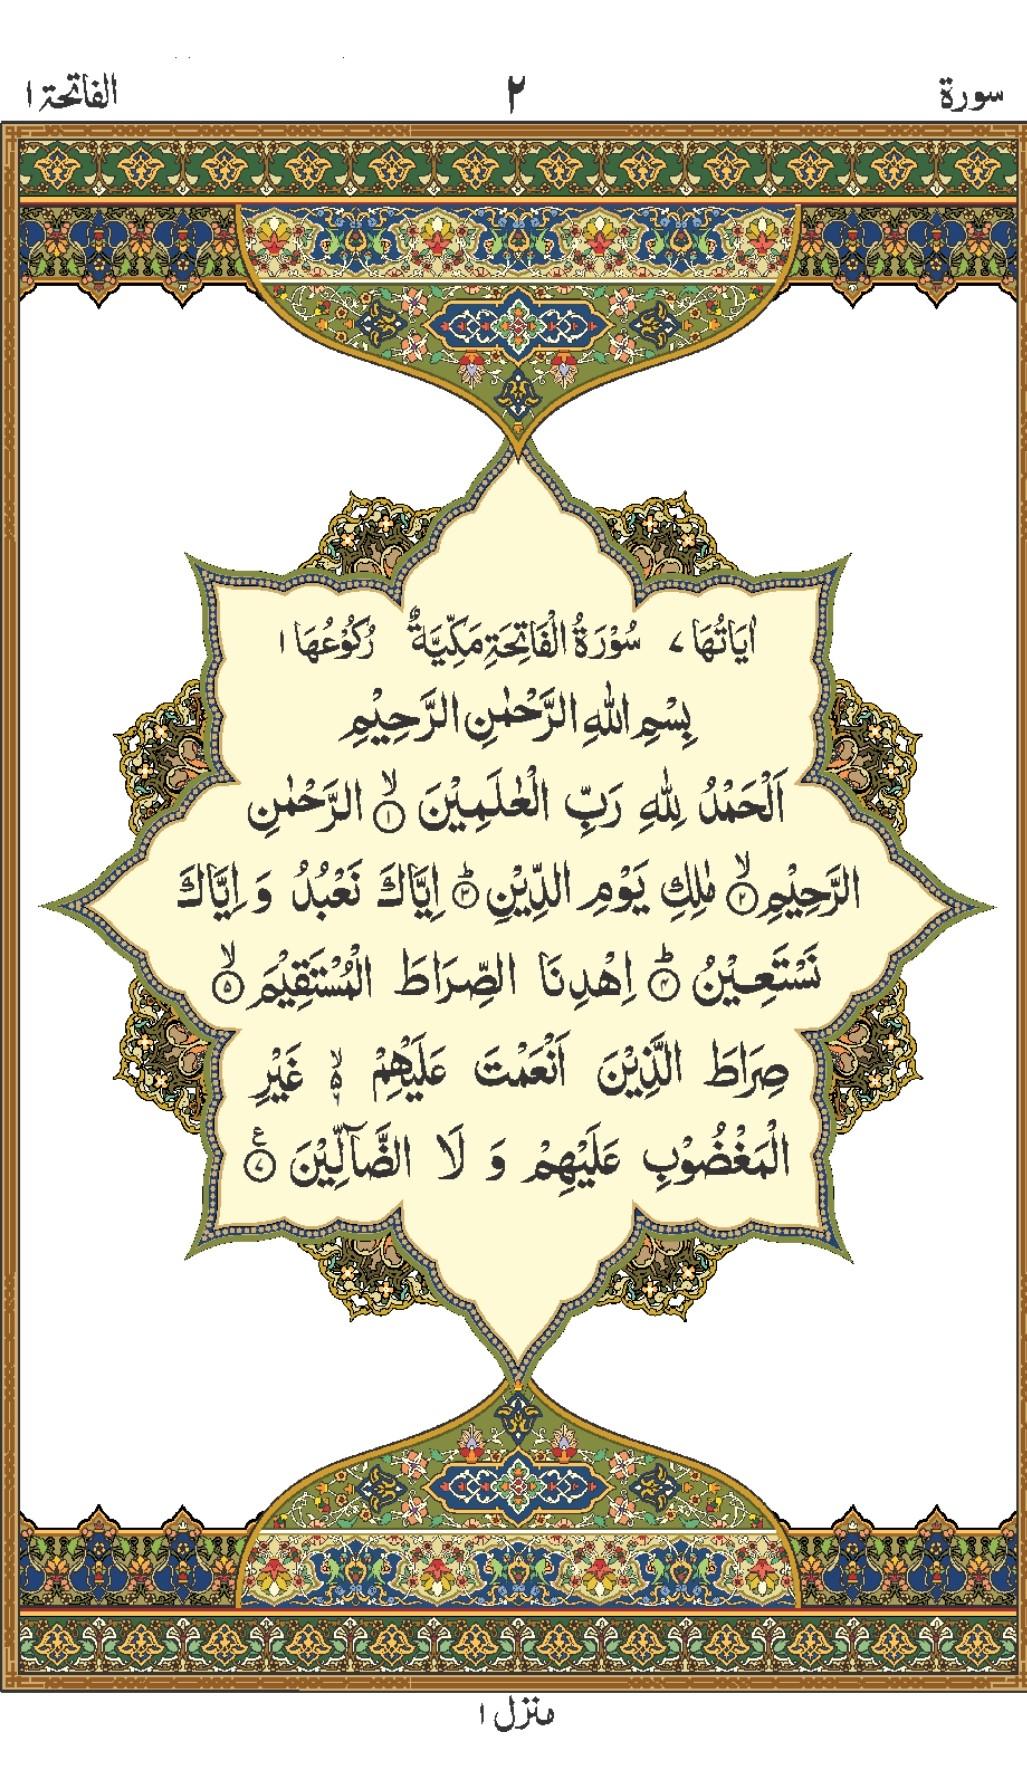 سورة ٢ الفاتحة ١
اٰيَاتُهَا ٧ سُوْرَةُ الْفَاتِحَةِ مَكِّيَّةٌ رُكُوْعُهَا ١
بِسْمِ اللهِ الرَّحْمٰنِ الرَّحِيْمِ
اَلْحَمْدُ لِلّٰهِ رَبِّ الْعٰلَمِيْنَ ۙ﴿١﴾ الرَّحْمٰنِ
الرَّحِيْمِ ۙ﴿٢﴾ مٰلِكِ يَوْمِ الدِّيْنِ ؕ﴿٣﴾ اِيَّاكَ نَعْبُدُ وَ اِيَّاكَ
نَسْتَعِيْنُ ؕ﴿٤﴾ اِهْدِنَا الصِّرَاطَ الْمُسْتَقِيْمَ ۙ﴿٥﴾
صِرَاطَ الَّذِيْنَ اَنْعَمْتَ عَلَيْهِمْ ۙ۬ۦ غَيْرِ
الْمَغْضُوْبِ عَلَيْهِمْ وَ لَا الضَّآلِّيْنَ ﴿٧﴾ ع
منزل ١